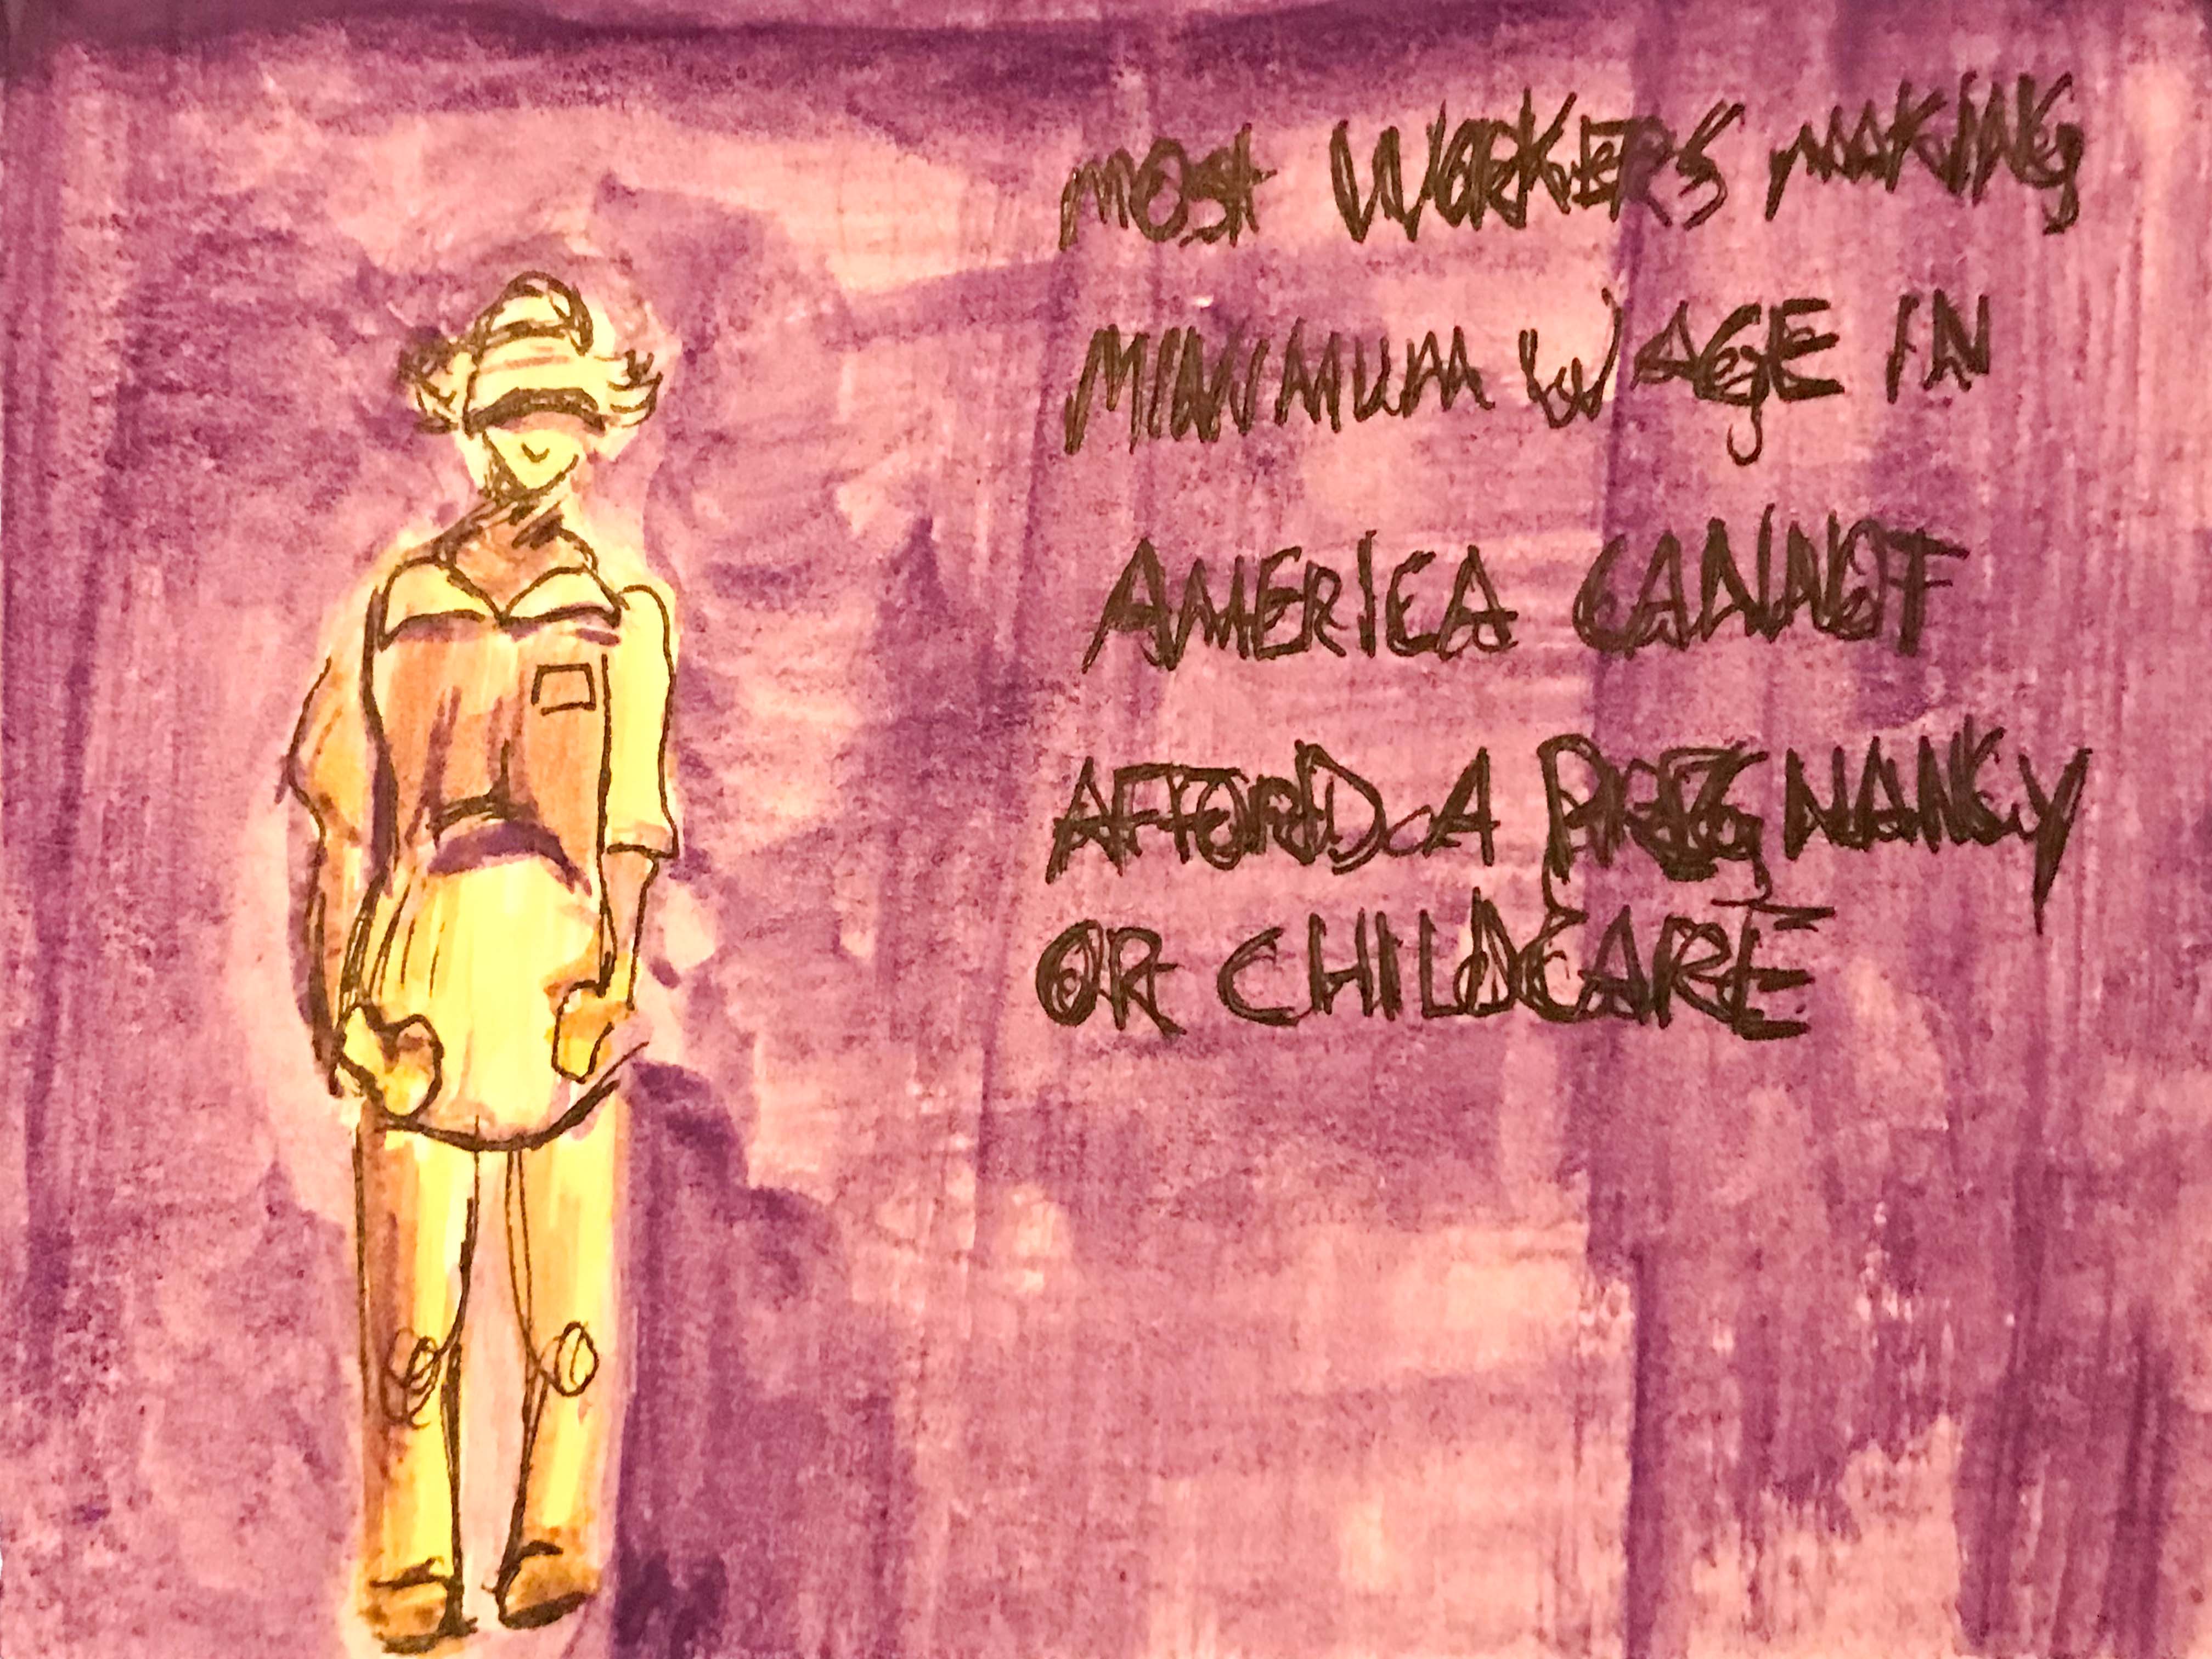 MOST WORKERS MAKING
MINIMUM WAGE IN
AMERICA CANNOT
AFFORD A PREGNANCY
OR CHILDCARE